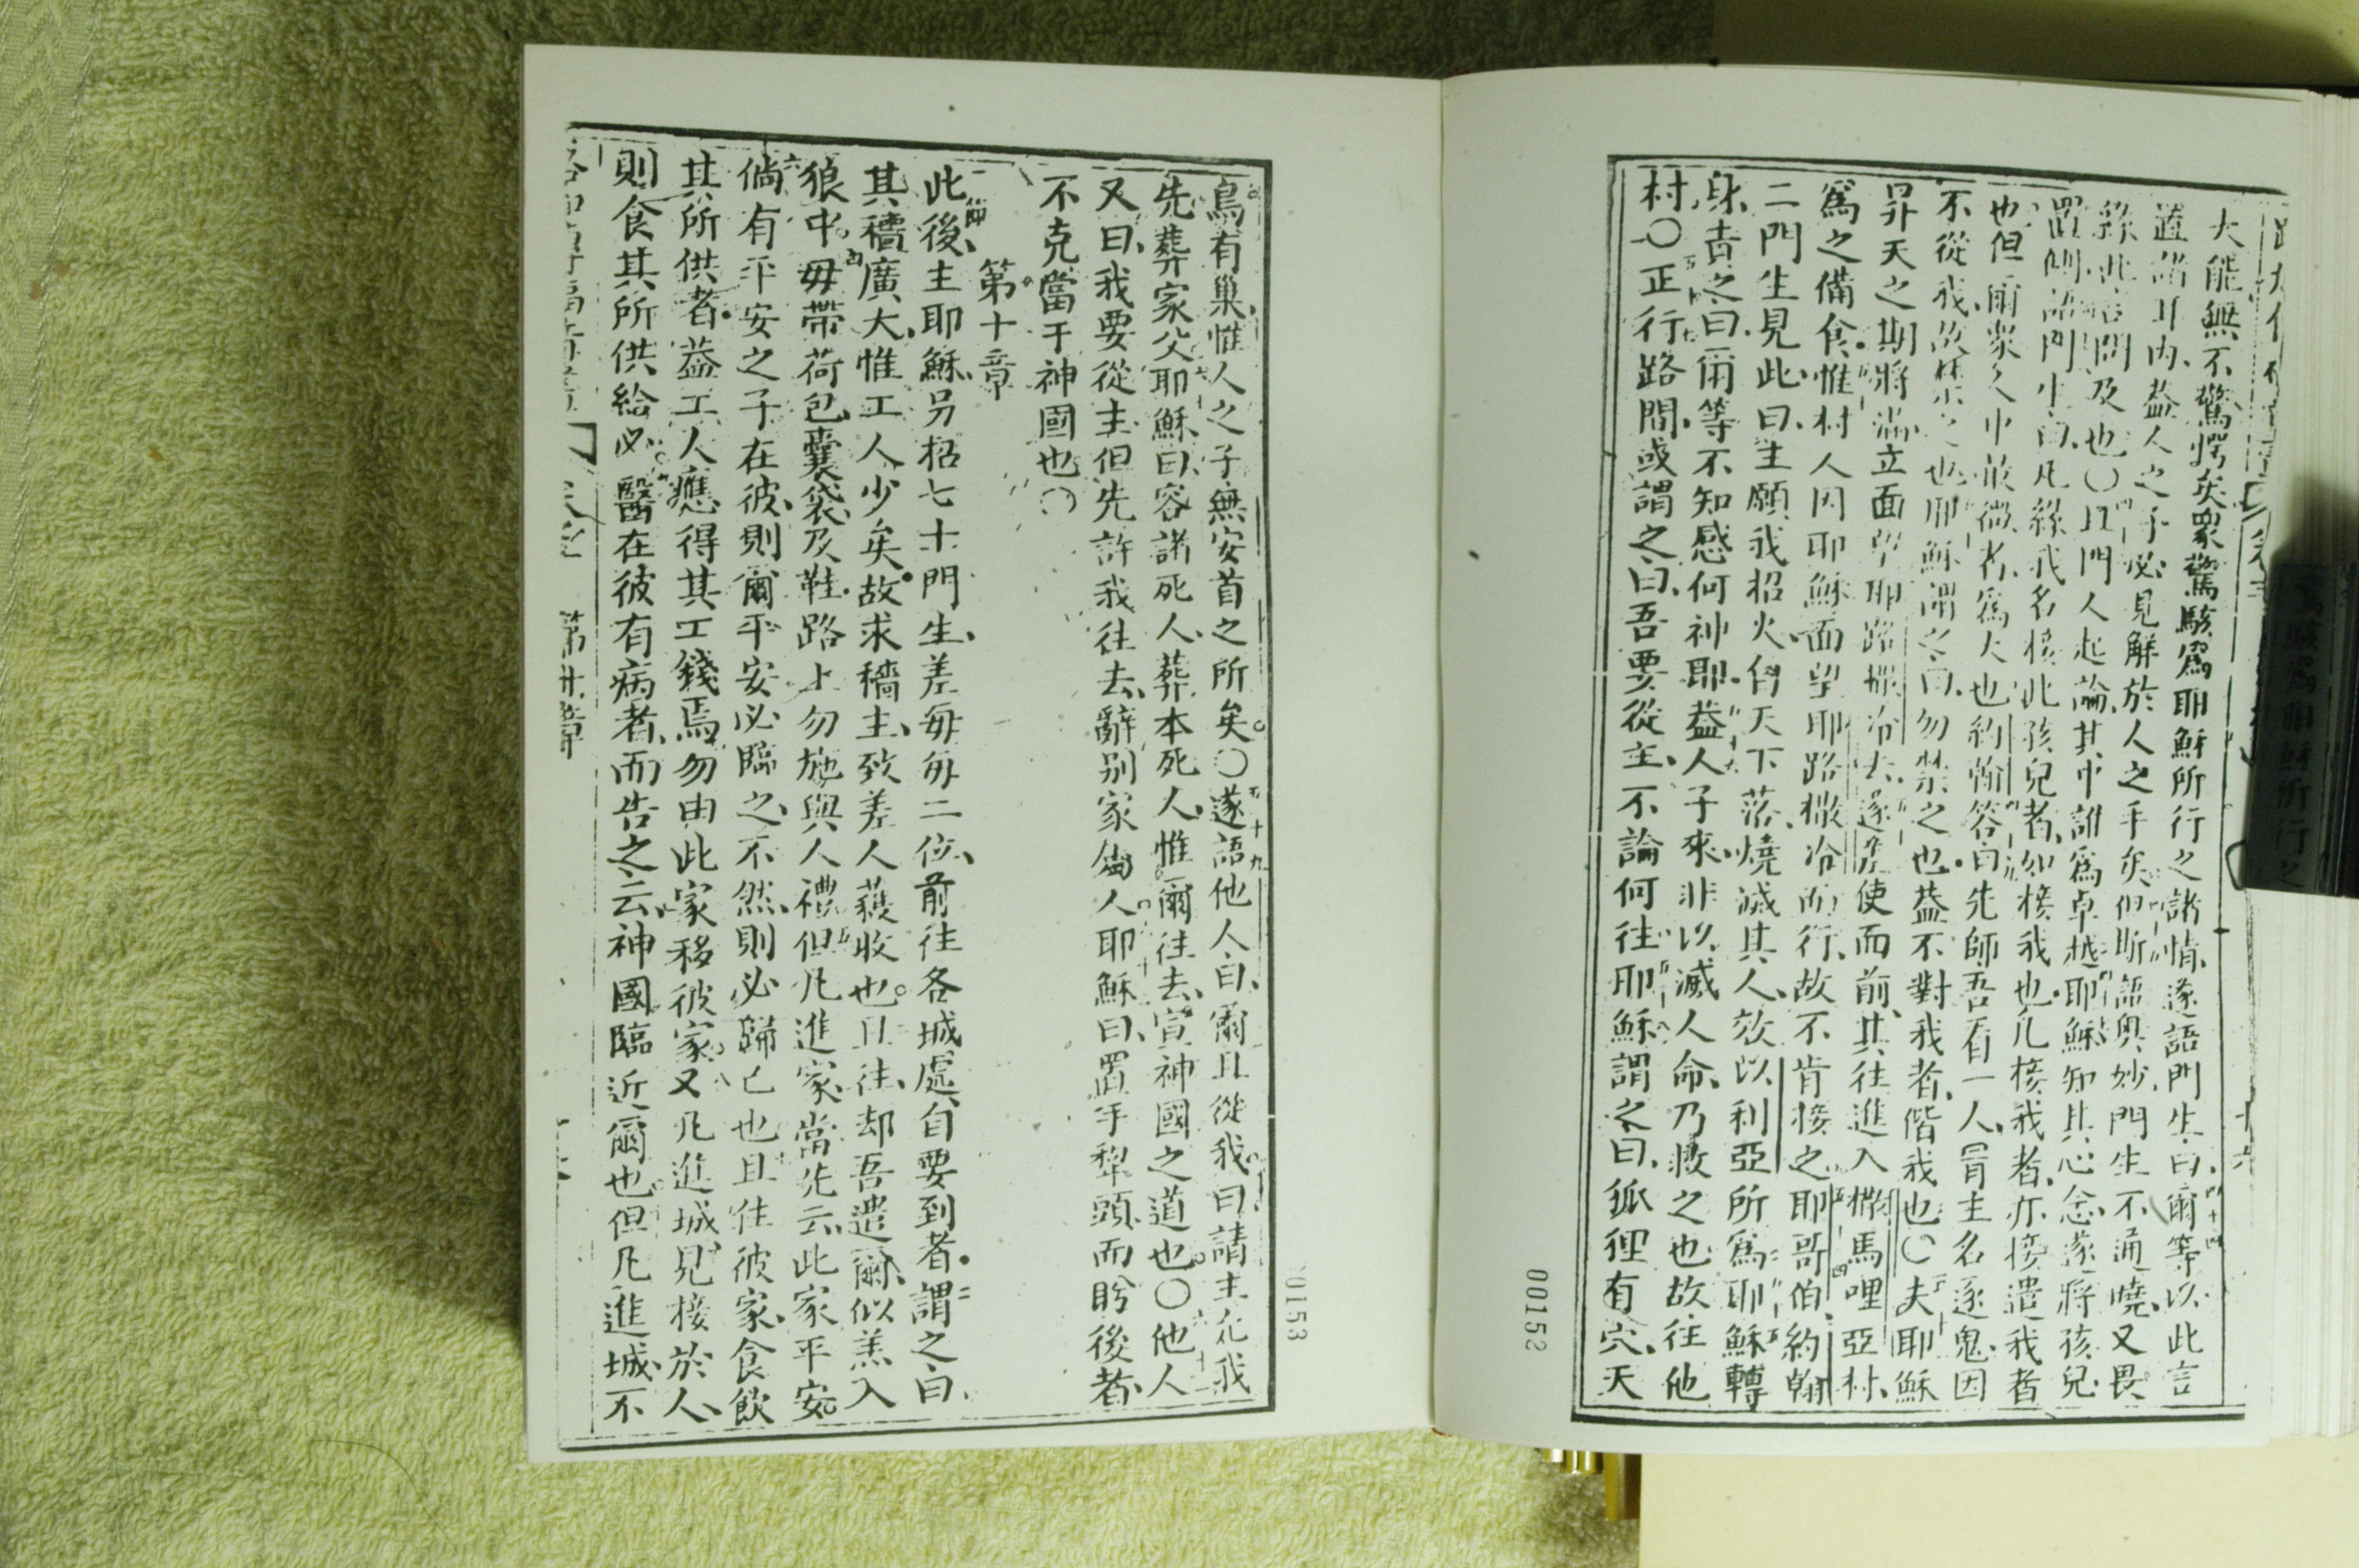 大能無不驚愕矣眾驚駭為耶穌所行之諸情、遂語門生曰、爾等以此言
置諸耳內、蓋人之子必見解於人之手矣但斯語奧妙、門生不通曉、又畏
問及也〇且門人起論其中誰為卓越耶穌知其心念遂將孩兒
置側語門生曰、凡緣我名接此孩兒者、如接我也凡接我者、亦接遣我者
也但爾眾之中最微者為大也約翰答曰先師吾看一人、冒主名逐鬼因
不從我、故禁之也耶穌謂之曰、勿禁之也蓋不對我者、偕我也〇夫耶穌
昇天之期將滿立面望耶路撒冷去遂差使而前其往進入撒馬哩亞村、
為之備食惟村人因耶穌面望耶路撒冷而行、故不肯接之耶哥伯、約翰
二門生見此曰、主願我招火自天下落、燒滅其人、效以利亞所為耶穌轉
身、責之曰爾等不知感何神耶蓋人子來、非以滅人命、乃救之也故往他
村〇正行路間、或謂之曰、吾要從主、不論何往耶穌謂之曰、狐狸有穴、天
00152
鳥有巢惟人之子無安首之所矣〇遂語他人曰、爾且從我曰請主允我
先葬家父耶穌曰、容諸死人葬本死人、惟爾往去、宣神國之道也〇他人
又曰、我要從主、但先許我往去、辭别家人耶穌曰、置手犁頭而盻後者、
不克當于神國也〇
第十章
此後、主耶穌另招七十門生、差每每二位、前往各城處、自要到者、謂之曰、
其穡廣大、惟工人少矣、故求穡主、致差人穫收也。且往、却吾遣爾、似羔入
狼中、毋帶荷包囊袋及鞋路上勿施與人禮但凡進家當先云、此家平安。
倘有平安之子在彼、則爾平安必臨之、不然、則必歸己也且住彼家、食飲
其所供者、蓋工人應得其工錢焉勿由此家移彼家又凡進城見接於人、
則食其所供給必醫在彼有病者、而告之云、神國臨近爾也但凡進城不
第十章
00153